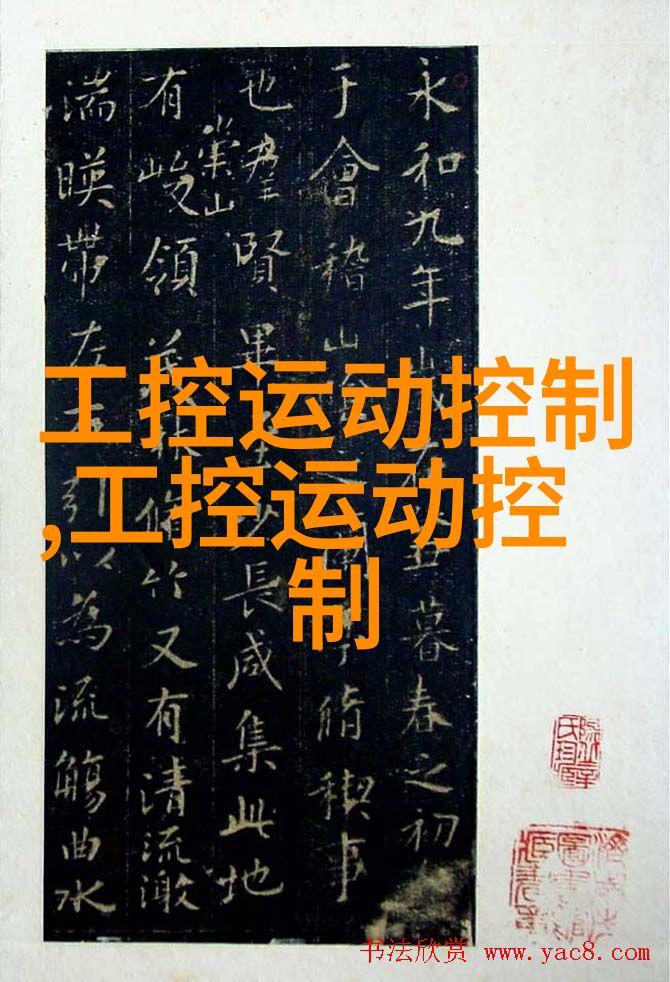 永和九年歲丑暮春之初
于會稽山脩稧事
也羣賢畢少長咸集此地
有崇山峻領茂林脩竹又有清流激
湍暎帶左右引以為流觴曲水
工控运动控制
,工控运动控
制
书法欣赏 www.yac8.com